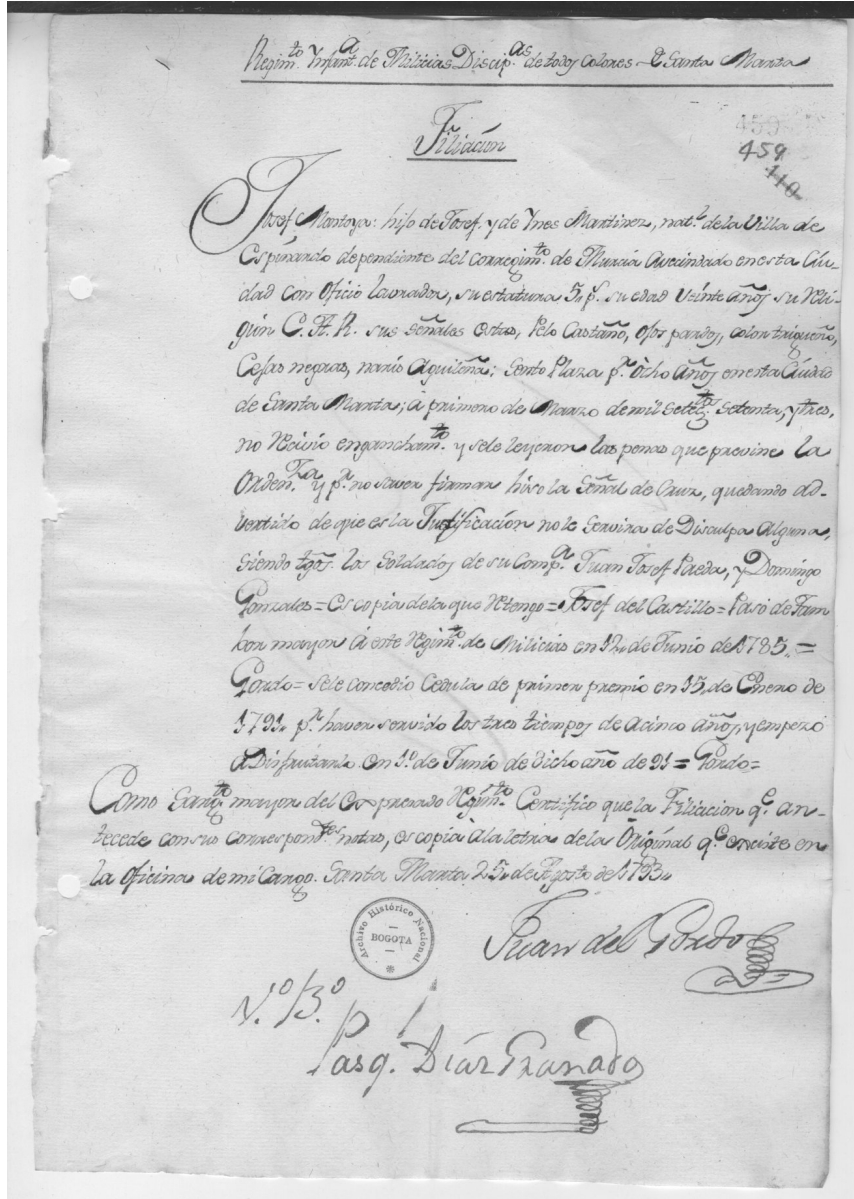 Regim.to Ynfant.a de Milicias Discip.as de todos colores de Santa Marta
Filiación
459
459
110
Josef Montoya: hijo de Josef, y de Ynes Martinez, nat.l de la Villa de
Espinardo dependiente del corregim.to de Murcia Avecindado en esta Ciu-
dad con Oficio Lavrador, su estatura 5. p.s su edad veinte años su reli-
gión C. A. R. sus señales estas, Pelo Castaño, ojos pardos, color trigueño,
Cejas negras, naris Aguileña: Sento Plaza p.r ocho años en esta Ciudad
de Santa Marta; á primero de Marzo de mil setec.tos setenta, y tres,
no recivio engancham.to y se le leyeron las penas que previne la
Orden.za y p.r no saver firmar hiso la Señal de Cruz, quedando ad-
vertido de que es la Justificación no le servira de Disculpa Alguna,
siendo tgos. los Soldados de su Comp.a Juan Josef Pareda, y Domingo
Gonzales = Es copia de la que retengo = Josef del Castillo = Pasó de Tam
bor mayor á este Regim.to de Milicias en 12, de Junio de 1785. =
Gordo = Se le concedio Cedula de primer premio en 15, de Enero de
1791. p.r haver servido los tres tiempos de a cinco años, y empezó
a Disfrutarlo en 1.o de Junio de dicho año de 91 = Gordo =
Como Sarg.to mayor del Expresado Regim.to Certifico que la Filiacion q.e an-
tecede con sus correspond.tes notas, es copia á la letra de la Original q.e existe en
la Oficina de mi Cargo. Santa Marta 25, de Agosto de 1793.
Juan del Gordo
Archivo Histórico Nacional
BOGOTA
N.o 13.o
Pasq.l Díaz Granado